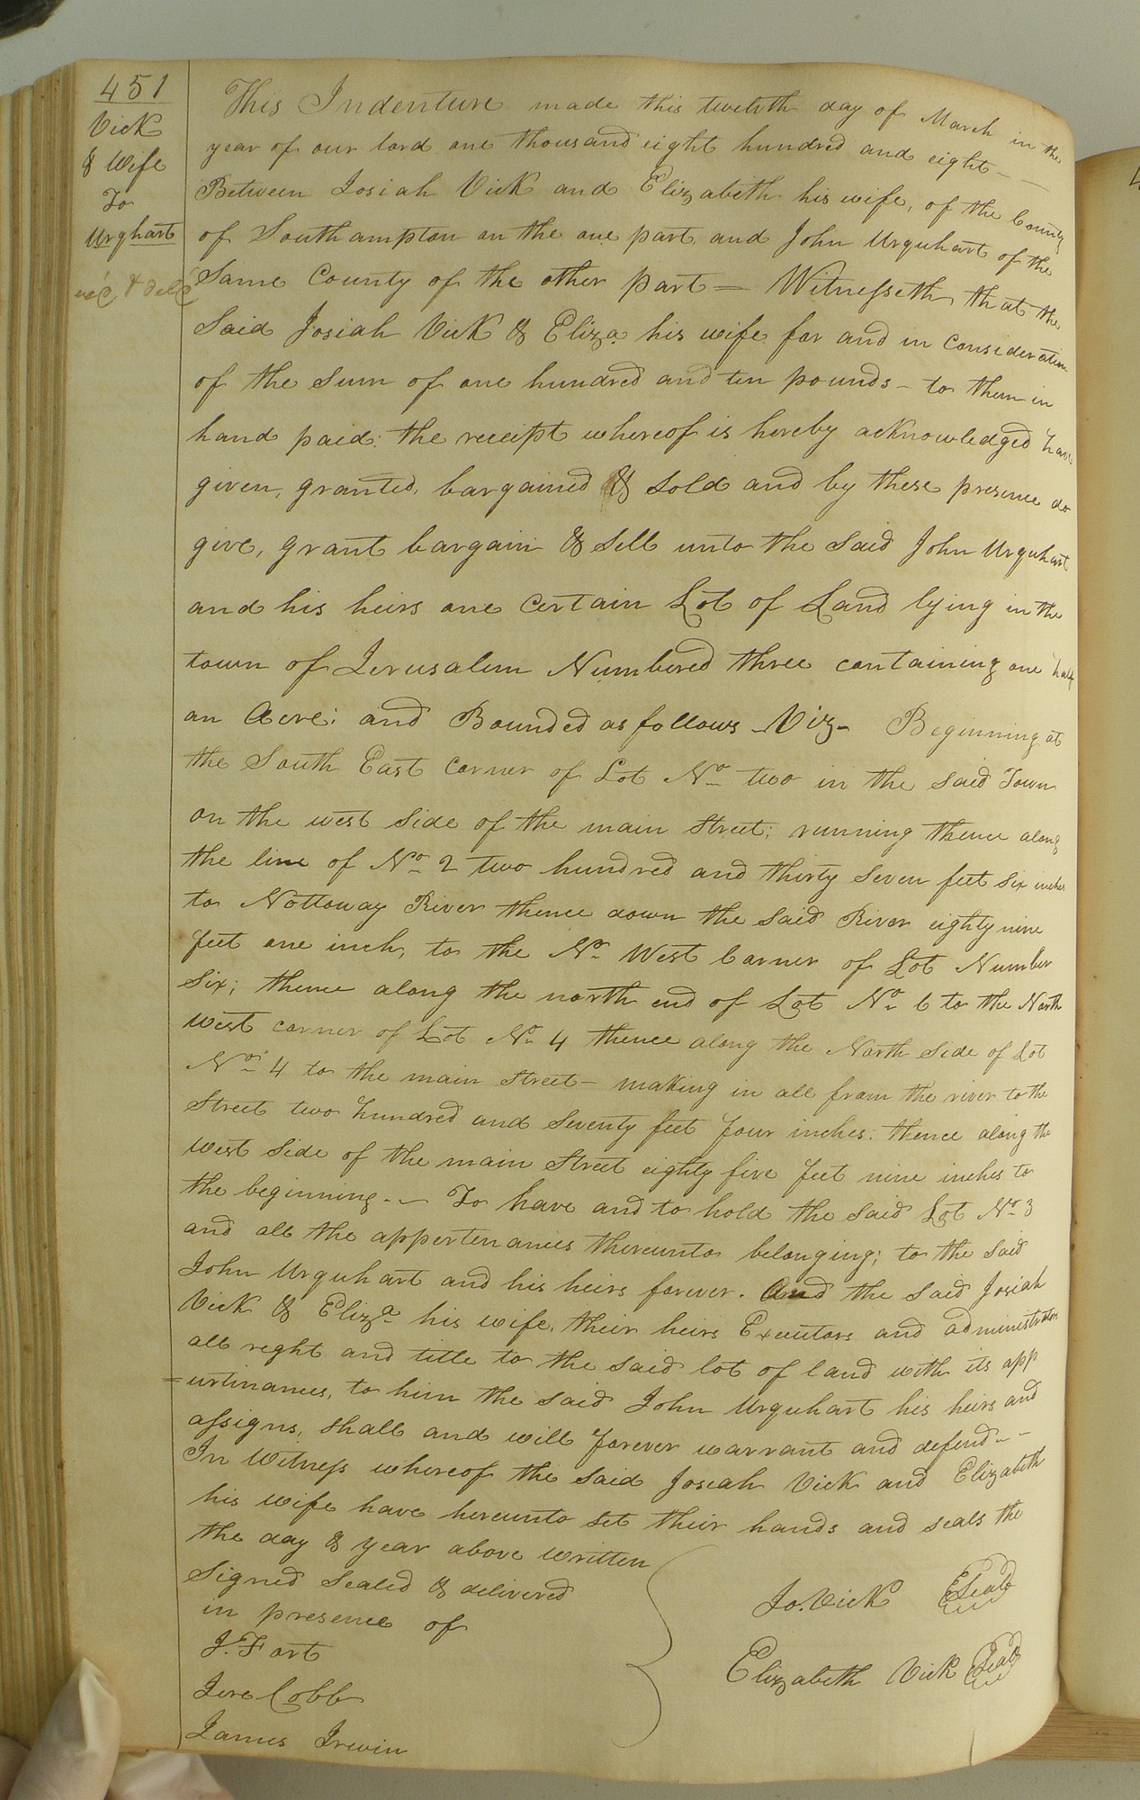 451
Vick
& Wife
To
Urghart
exd & deld
This Indenture made this twelvth day of March in the
year of our lord one thousand eight hundred and eight--
Between Josiah Vick and Elizabeth his wife, of the County
of Southampton on the one part, and John Urquhart of the
Same County of the other part = Witnesseth, that the
Said Josiah Vick & Eliza. his wife for and in consideration
of the Sum of one hundred and ten pounds - to them in
hand paid: the receipt whereof is hereby acknowledged have
given, granted, bargained & Sold and by these presence do
give, grant bargain & Sell unto the Said John Urquhart
and his heirs one Certain Lot of Land lying in the
town of Jerusalem Numbered three containing one half
an Acre: and Bounded as follows - Viz - Beginning at
the South East Corner of Lot No two in the Said Town
on the west Side of the main Street; running thence along
the line of No 2 two hundred and thirty Seven feet Six inches
to Nottoway River thence down the Said River eighty nine
feet one inch, to the No. West Corner of Lot Number
Six; thence along the north end of Lot No. 6 to the North
west corner of Lot No 4 thence along the North Side of Lot
No. 4 to the main Street - making in all from the river to the
Street two hundred and Seventy feet four inches. thence along the
west Side of the main Street eighty five feet nine inches to
the beginning - - To have and to hold the Said Lot No 3
and all the appertenances thereunto belonging; to the Said
John Urquhart and his heirs forever. And the Said Josiah
Vick & Eliza his wife, their heirs Executors and administrators
all reght and title to the said lot of land with its app
=urtinances, to him the Said John Urquhart his heirs and
assigns, Shall and will forever warrant and defend--
In Witness whereof the Said Josiah Vick and Elizabeth
his wife have hereunto Set their hands and seals the
the day & year above written
Signed Sealed & delivered
in presence of
J. Fort
Jere Cobb
James Irwin
Jo. Vick Seal
Elizabeth Vick Seal